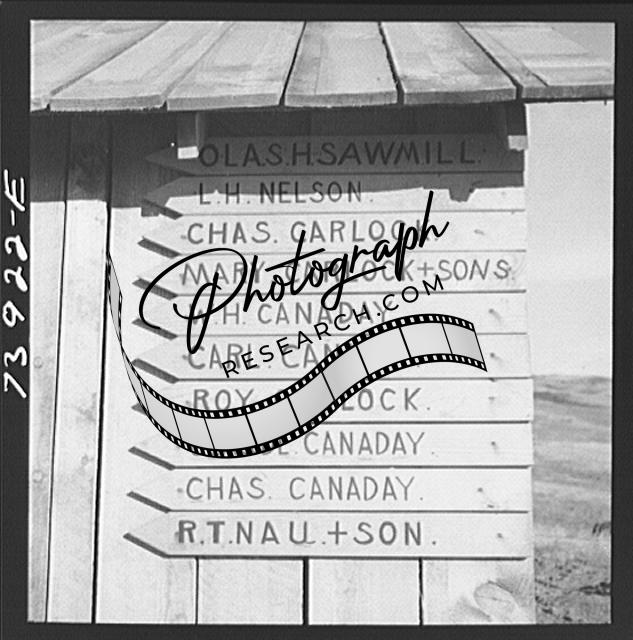 OLA.S.H.SAWMILL.
L.H. NELSON.
CHAS. CARLOCK.
MARY CARLOCK+SONS.
H. CANADAY
CARL CAN
ROY LOCK.
CANADAY.
CHAS. CANADAY.
R.T.NAU.+SON.
Photograph
RESEARCH.COM
73922-E